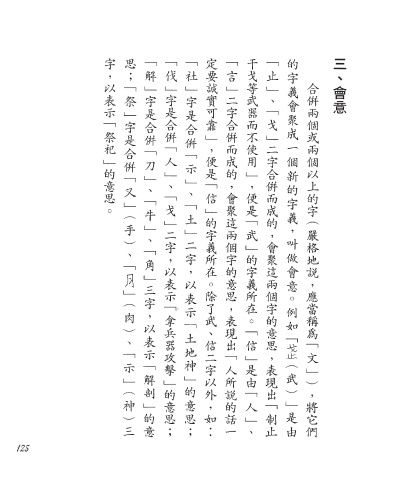 三、會意
合併兩個或兩個以上的字(嚴格地說,應當稱爲「文」),將它們
的字義會聚成一個新的字義,叫做會意。例如「(武)」是由
「止」、「戈」二字合併而成的,會聚這兩個字的意思,表現出「制止
干戈等武器而不使用」,便是「武」的字義所在。「信」是由「人」、
「言」二字合併而成的,會聚這兩個字的意思,表現出「人所說的話一
定要誠實可靠」,便是「信」的字義所在。除了武、信二字以外,如:
「社」字是合併「示」、「土」二字,以表示「土地神」的意思;
「伐」字是合併「人」、「戈」二字,以表示「拿兵器攻擊」的意思;
「解」字是合併「刀」、「牛」、「角」三字,以表示「解剖」的意
思;「祭」字是合併「又」(手)、「」(肉)、「示」(神)三
字,以表示「祭祀」的意思。
125